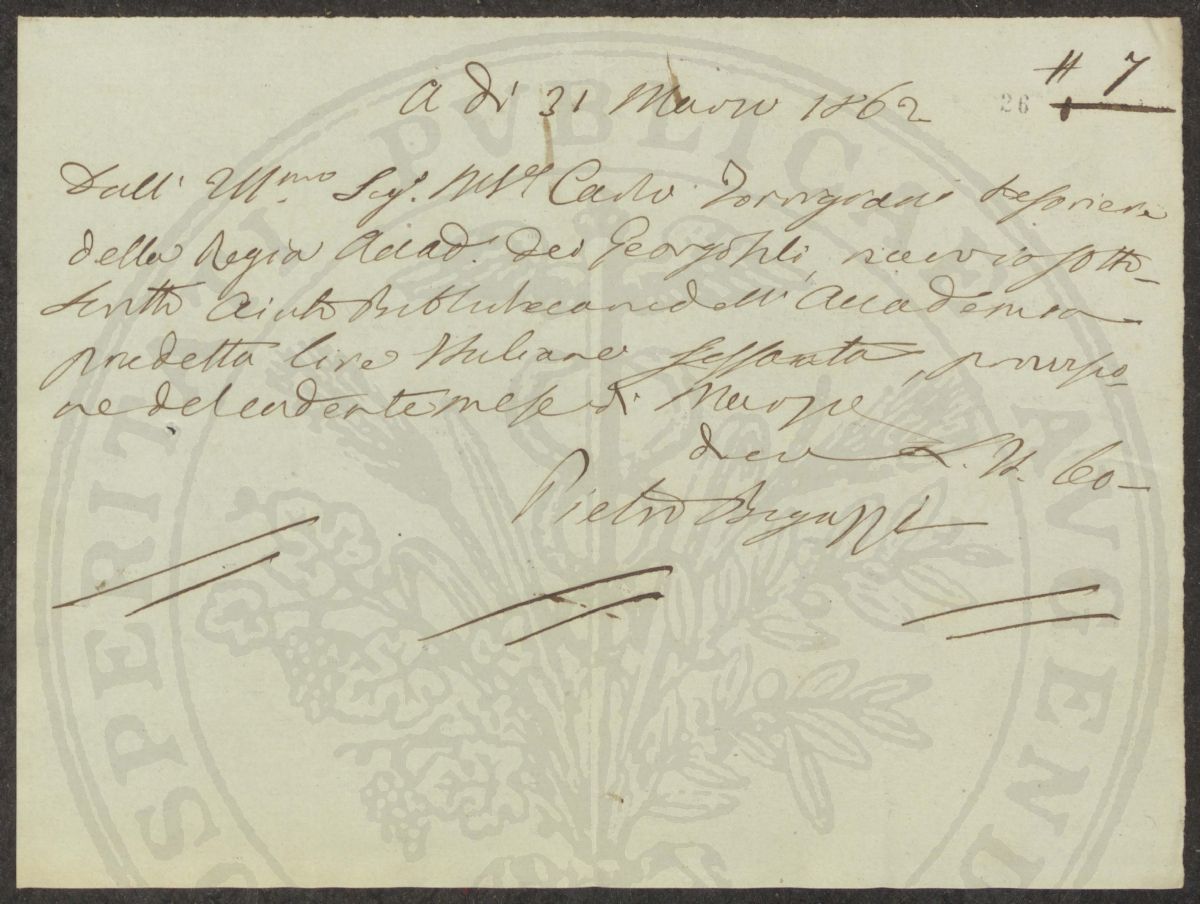 # 7
26
A dì 31 Marzo 1862
Dall' Illmo Sigr. Mse Carlo Torrigiani tesoriere
della Regia Accad. dei Georgofili, ricevo io sotto-
scritto Aiuto Bibliotecario dell' Accademia
predetta lire Italiane sessanta, provvisio-
ne del cadente mese di Marzo
dico £. It. 60-
Pietro Bigazzi
PROSPERITATI PUBLICAE AUGENDAE